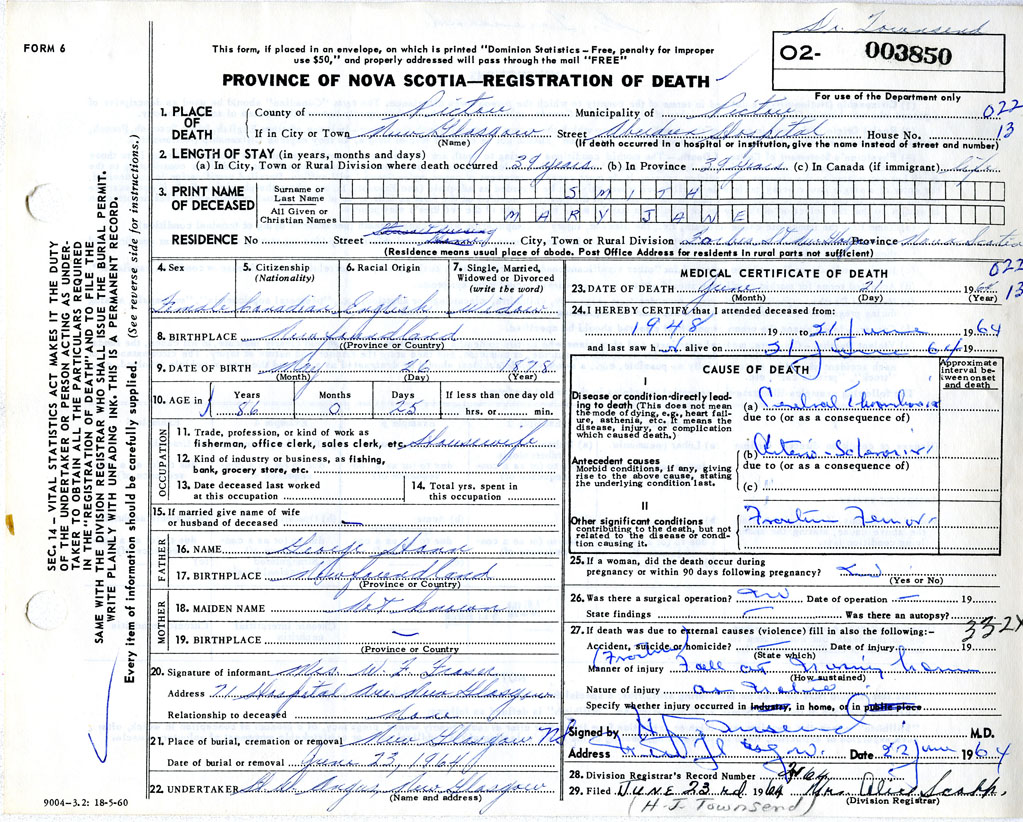 Dr. Townsend
FORM 6
This form, if placed in an envelope, on which is printed "Dominion Statistics – Free, penalty for improper
use $50," and properly addressed will pass through the mail "FREE"
02- 003850
PROVINCE OF NOVA SCOTIA—REGISTRATION OF DEATH
For use of the Department only
1. PLACE OF DEATH County of Pictou Municipality of Pictou 022
If in City or Town New Glasgow Street Aberdeen Hospital House No. 13
(Name) (If death occurred in a hospital or institution, give the name instead of street and number)
2. LENGTH OF STAY (in years, months and days)
(a) In City, Town or Rural Division where death occurred 39 years (b) In Province 39 years (c) In Canada (if immigrant) life
3. PRINT NAME OF DECEASED Surname or Last Name SMITH
All Given or Christian Names MARY JANE
RESIDENCE No Street City, Town or Rural Division Forbes St New Glasgow Province Nova Scotia
(Residence means usual place of abode. Post Office Address for residents in rural parts not sufficient)
4. Sex 5. Citizenship (Nationality) 6. Racial Origin 7. Single, Married, Widowed or Divorced (write the word)
Female Canadian English Widow
8. BIRTHPLACE Newfoundland
(Province or Country)
9. DATE OF BIRTH May 26 1878
(Month) (Day) (Year)
10. AGE in Years Months Days If less than one day old
86 0 25 hrs. or min.
OCCUPATION
11. Trade, profession, or kind of work as
fisherman, office clerk, sales clerk, etc. Housewife
12. Kind of industry or business, as fishing,
bank, grocery store, etc.
13. Date deceased last worked at this occupation 14. Total yrs. spent in this occupation
15. If married give name of wife
or husband of deceased —
FATHER
16. NAME George
17. BIRTHPLACE Newfoundland
(Province or Country)
MOTHER
18. MAIDEN NAME Not known
19. BIRTHPLACE —
(Province or Country
20. Signature of informant Mrs. W. F. Fraser
Address 71 Hospital Ave New Glasgow
Relationship to deceased None
21. Place of burial, cremation or removal New Glasgow NS
Date of burial or removal June 23, 1964
22. UNDERTAKER Angus, New Glasgow
(Name and address)
9004–3.2: 18-5-60
MEDICAL CERTIFICATE OF DEATH
022
23. DATE OF DEATH June 21 1964 13
(Month) (Day) (Year)
24. I HEREBY CERTIFY that I attended deceased from:
1948 19 to 21 June 1964
and last saw h alive on 21 June 64 19
CAUSE OF DEATH
Approximate interval between onset and death
I
Disease or condition directly leading to death (This does not mean the mode of dying, e.g., heart failure, asthenia, etc. It means the disease, injury, or complication which caused death.)
(a) Cerebral Thrombosis
due to (or as a consequence of)
Antecedent causes
Morbid conditions, if any, giving rise to the above cause, stating the underlying condition last.
(b) Arterio-Sclerosis
due to (or as a consequence of)
(c)
II
Other significant conditions
contributing to the death, but not related to the disease or condition causing it.
Fracture Femur
25. If a woman, did the death occur during
pregnancy or within 90 days following pregnancy? No
(Yes or No)
26. Was there a surgical operation? No Date of operation — 19
State findings — Was there an autopsy?
27. If death was due to external causes (violence) fill in also the following:– 332X
Accident, suicide or homicide? — Date of injury 19
(State which)
(Fracture)
Manner of injury Fall at Nursing home
(How sustained)
Nature of injury as above
Specify whether injury occurred in industry, in home, or in public place
Signed by H J Townsend M.D.
Address New Glasgow. Date 22 June 1964
28. Division Registrar's Record Number
29. Filed JUNE 23rd 1964 Mrs. Alice
(Division Registrar)
(H. J. Townsend)
SEC. 14 – VITAL STATISTICS ACT MAKES IT THE DUTY
OF THE UNDERTAKER OR PERSON ACTING AS UNDER-
TAKER TO OBTAIN ALL THE PARTICULARS REQUIRED
IN THE "REGISTRATION OF DEATH" AND TO FILE THE
SAME WITH THE DIVISION REGISTRAR WHO SHALL ISSUE THE BURIAL PERMIT.
WRITE PLAINLY WITH UNFADING INK. THIS IS A PERMANENT RECORD.
Every item of information should be carefully supplied. (See reverse side for instructions.)